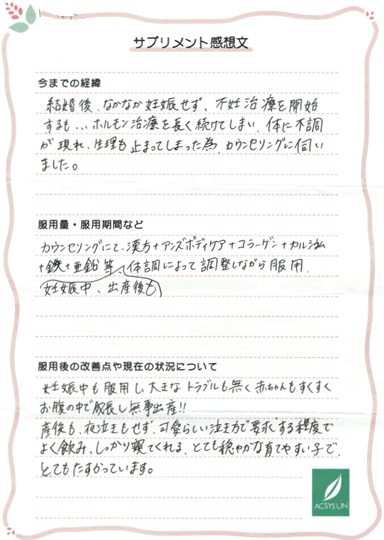 サプリメント感想文
今までの経緯
結婚後、なかなか妊娠せず、不妊治療を開始
するも... ホルモン治療を長く続けてしまい、体に不調
が現れ、生理も止まってしまった為、カウンセリングに伺い
ました。
服用量・服用期間など
カウンセリングにて、漢方+アンズボディケア+コラーゲン+カルシウム
+鉄+亜鉛 等 体調によって調整しながら服用。
妊娠中、出産後も
服用後の改善点や現在の状況について
妊娠中も服用し、大きなトラブルも無く赤ちゃんもすくすく
お腹の中で成長し無事出産!!
産後も、夜泣きもせず、可愛らしい泣き方で"要求"する程度で
よく飲み、しっかり寝てくれる、とても穏やかな育てやすい子で、
とてもたすかっています。
ACSYSUN